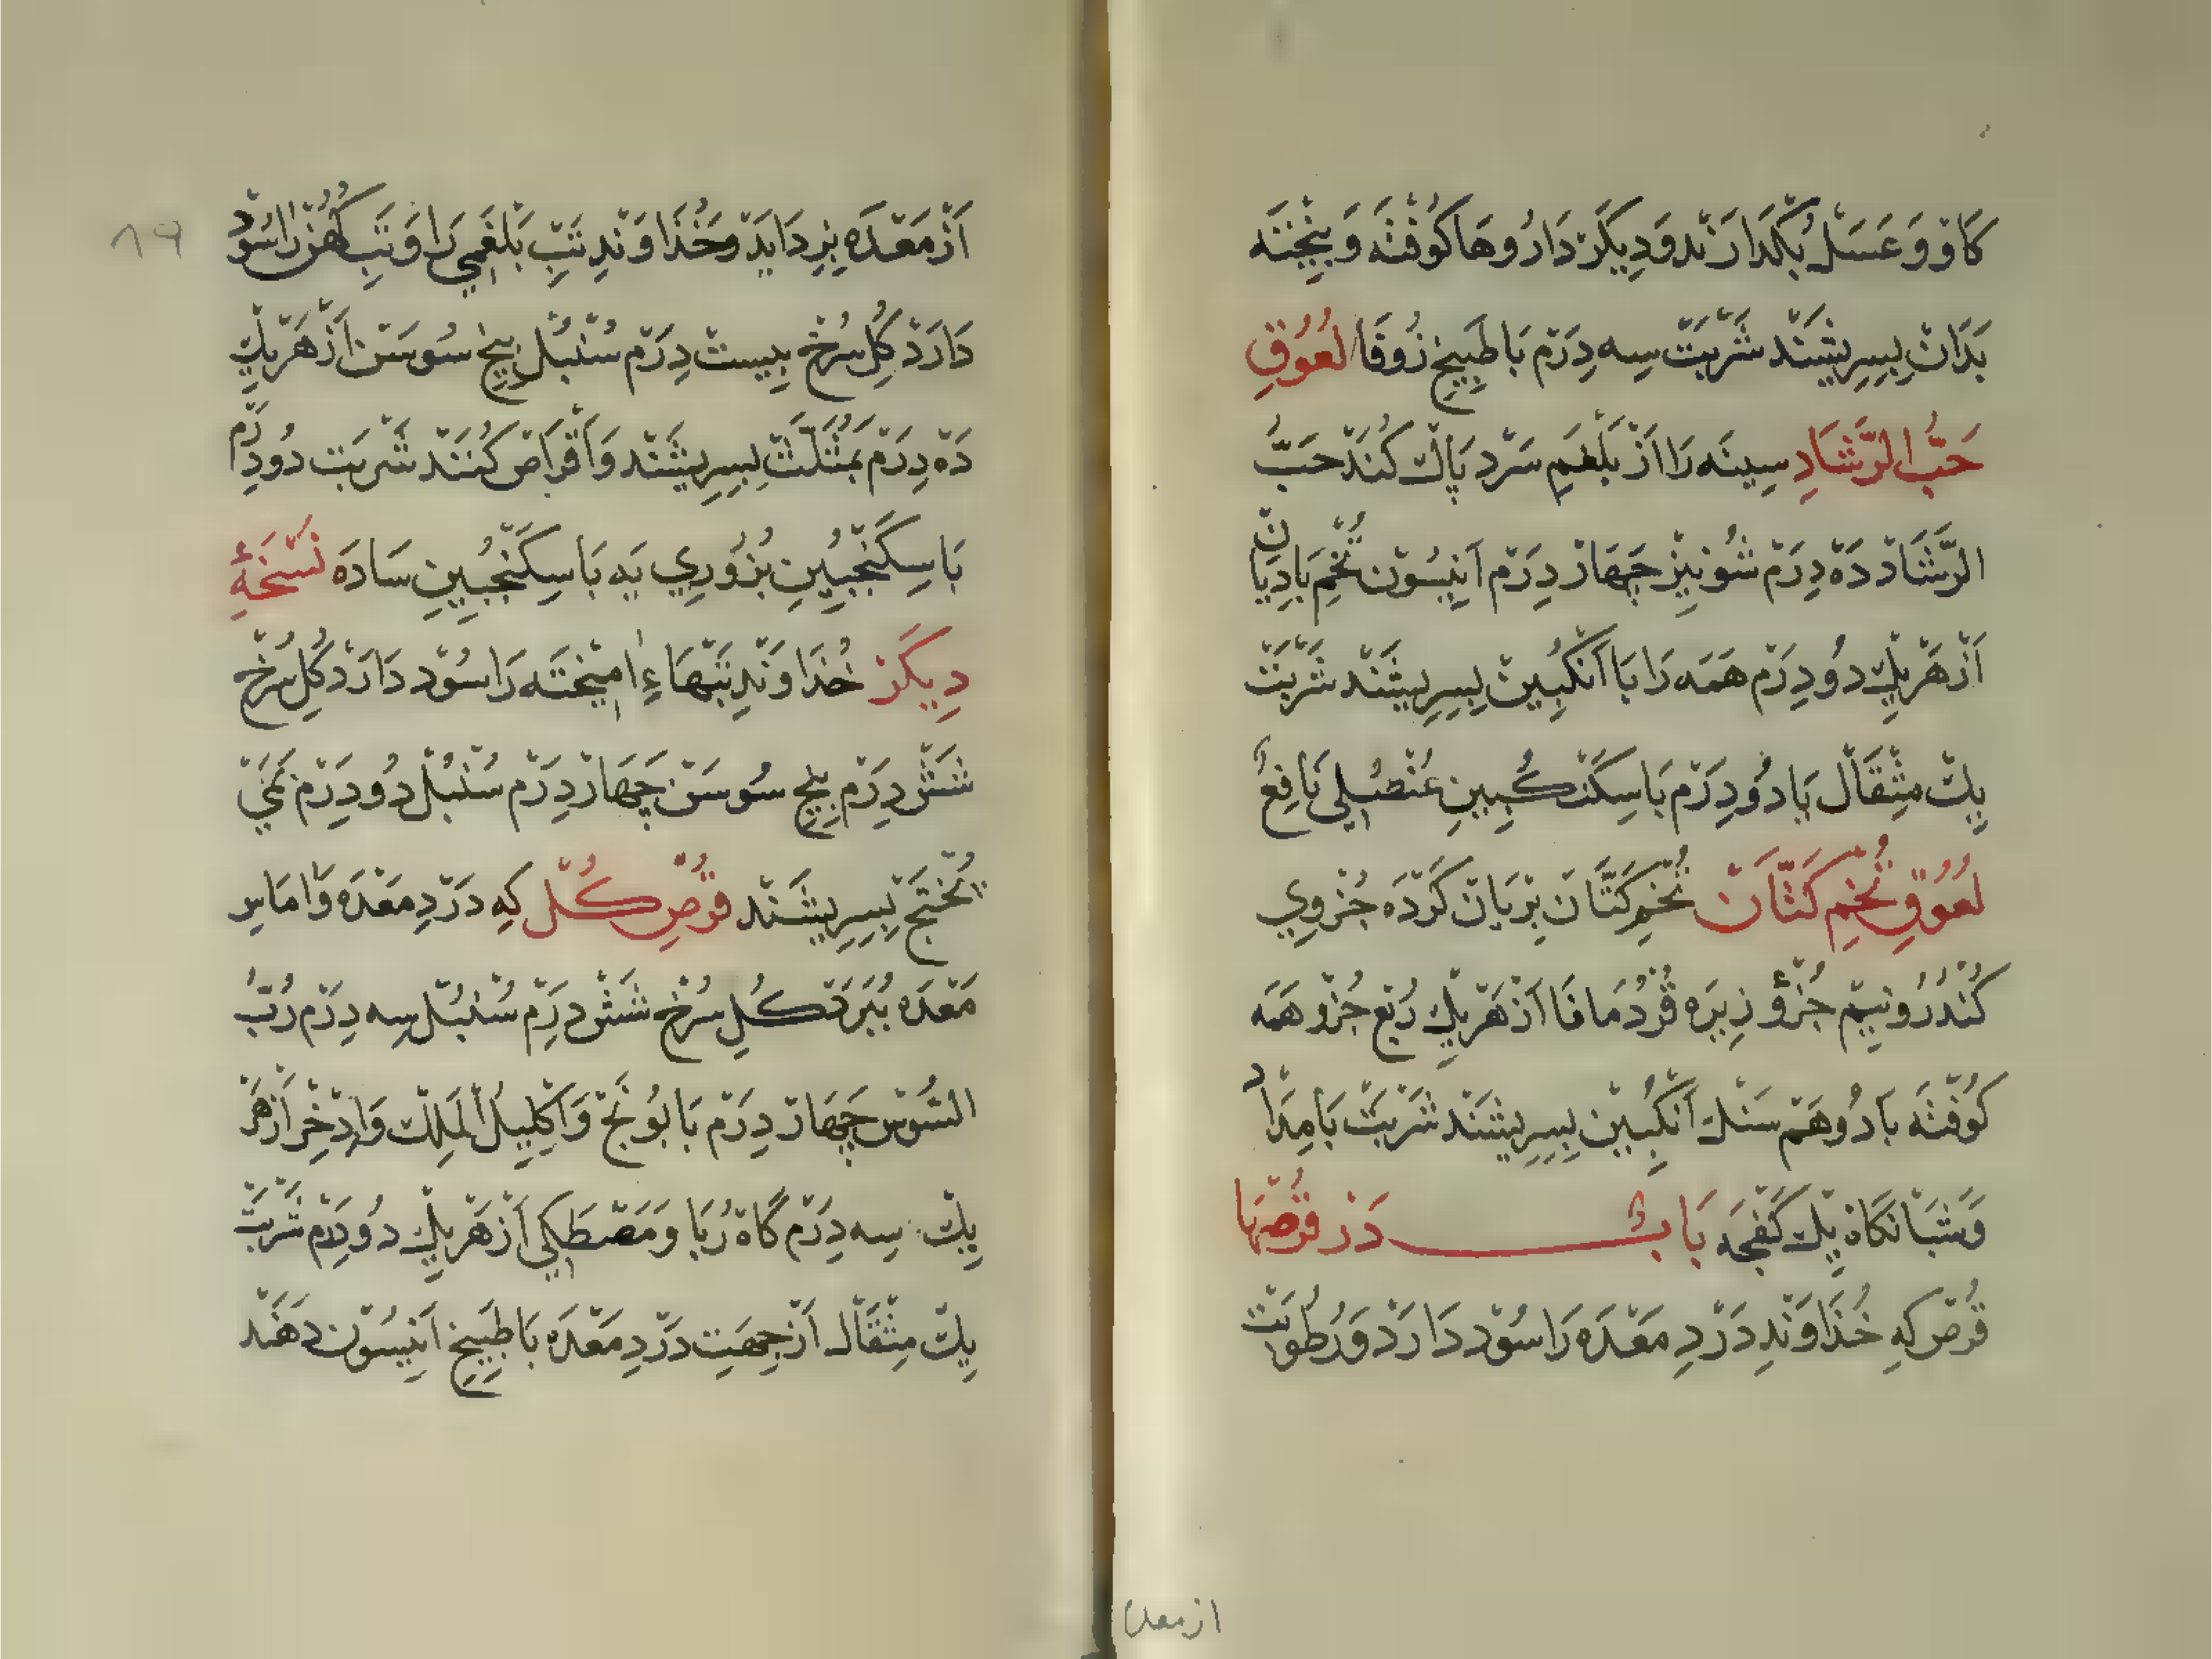 كَاوْ وَ عَسَلْ بُكْدَازَنْد وَ دِيكَرْ دَارُوهَا كُوفْتَه وَ بِيخْتَه
بَدَانْ بِسِرِيشَنْد شَرْبَتْ سِه دِرَمْ بَا طَبِيخِ زُوفَا لَعُوقِ
حَبُّ الرَّشَادِ سِينَه رَا اَزْ بَلْغَمِ سَرْد پَاكْ كُنَدْ حَبُّ
الرَّشَادْ دَهْ دِرَمْ شُونِيزْ چَهَارْ دِرَمْ اَنِيسُونْ تُخْمِ بَادِيَانْ
اَزْ هَرْيِكْ دُو دِرَمْ هَمَه رَا بَا اَنْكُبِينْ بِسِرِيشَنْد شَرْبَتْ
يِكْ مِثْقَالْ يَا دُو دِرَمْ بَا سِكَنْكُبِينِ عُنْصُلِي نَافِعْ
لَعُوقِ تُخْمِ كَتَّانْ تُخْمِ كَتَّانْ بِرْيَانْ كَرْدَه جُزْوِي
كُنْدُرُ و نِيمْ جُزْؤْ زِيرَه قُرْدُمَافَا اَزْ هَرْيِكْ رُبْعِ جُزْو هَمَه
كُوفْتَه بَا دُو هَمْ سَنْكْ اَنْكُبِينْ بِسِرِيشَنْد شَرْبَتْ بَامِدَادْ
وَ شَبَانْكَاهْ يِكْ كَفْچَه بَابْ دَرْ قُرْصْهَا
قُرْصْ كِهِ خُدَاوَنْدِ دَرْدِ مَعْدَه رَا سُوْد دَارَدْ وَ رُطُوبَتْ
از معده
٨٩
اَزْ مَعْدَه بِزِدَايَدْ وَ خُدَاوَنْدِ تَبِ بَلْغَمِي رَا وَ تَبِ كُهُنْ رَا سُوْدْ
دَارَدْ كُلِ سُرْخ بِيسْتْ دِرَمْ سُنْبُلْ بِيخِ سُوسَنْ اَزْ هَرْيِكْ
دَهْ دِرَمْ بَمُثَلَّثْ بِسِرِيشَنْد وَ اَقْرَاصْ كُنَنْد شَرْبَتْ دُو دِرَمْ
بَا سِكَنْجُبِينِ بُزُورِي يَه بَا سِكَنْجُبِينِ سَادَه نُسْخَهٔ
دِيكَرْ خُدَاوَنْدِ تَبْهَاءِ امِيخْتَه رَا سُوْد دَارَدْ كُلِ سُرْخْ
شَشْ دِرَمْ بِيخِ سُوسَنْ چَهَارْ دِرَمْ سُنْبُلْ دُو دِرَمْ بَمَيْ
پُخْتَجْ بِسِرِيشَنْد قُرْصِ كُلْ كِه دَرْدِ مَعْدَه وَ امَاسِ
مَعْدَه بُبَرَدْ كُلِ سُرْخ شَشْ دِرَمْ سُنْبُلْ سِه دِرَمْ رُبُّ
السُّوسْ چَهَارْ دِرَمْ بَابُونَجْ وَ اَكْلِيلُ الْمَلِكْ وَ اِذْخِرْ اَزْ هَرْ
يِكْ سِه دِرَمْ كَاهْ رُبَا وَ مَصْطَكِي اَزْ هَرْيِكْ دُو دِرَمْ شَرْبَتْ
يِكْ مِثْقَالْ اَزْ جِهَتِ دَرْدِ مَعْدَه بَا طَبِيخِ اَنِيسُونْ دَهَنْد